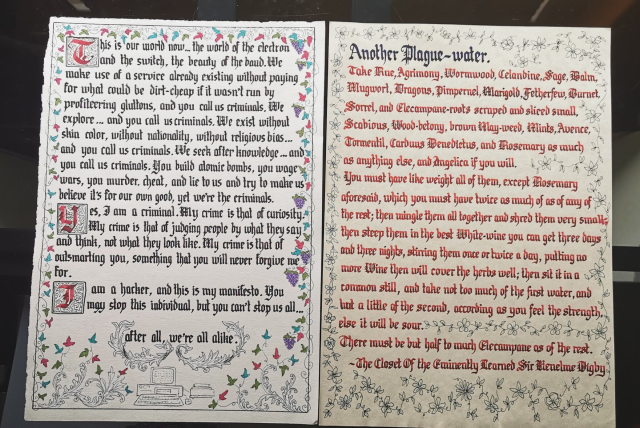 This is our world now... the world of the electron
and the switch, the beauty of the baud. We
make use of a service already existing without paying
for what could be dirt-cheap if it wasn't run by
profiteering gluttons, and you call us criminals. We
explore... and you call us criminals. We exist without
skin color, without nationality, without religious bias...
and you call us criminals. We seek after knowledge... and
you call us criminals. You build atomic bombs, you wage
wars, you murder, cheat, and lie to us and try to make us
believe it's for our own good, yet we're the criminals.
Yes, I am a criminal. My crime is that of curiosity.
My crime is that of judging people by what they say
and think, not what they look like. My crime is that of
outsmarting you, something that you will never forgive me
for.
I am a hacker, and this is my manifesto. You
may stop this individual, but you can't stop us all...
after all, we're all alike.
Another Plague-water.
Take Rue, Agrimony, Wormwood, Celandine, Sage, Balm,
Mugwort, Dragons, Pimpernel, Marigold, Fetherfew, Burnet,
Sorrel, and Elecampane-roots scraped and sliced small,
Scabious, Wood-betony, brown May-weed, Mints, Avence,
Tormentil, Carduus Benedictus, and Rosemary as much
as anything else, and Angelica if you will.
You must have like weight all of them, except Rosemary
aforesaid, which you must have twice as much of as of any of
the rest; then mingle them all together and shred them very small;
then steep them in the best White-wine you can get three days
and three nights, stirring them once or twice a day, putting no
more Wine then will cover the herbs well; then sit it in a
common still, and take not too much of the first water, and
but a little of the second, according as you feel the strength,
else it will be sour.
There must be but half to much Elecampane as of the rest.
-The Closet Of the Eminently Learned Sir Kenelme Digby